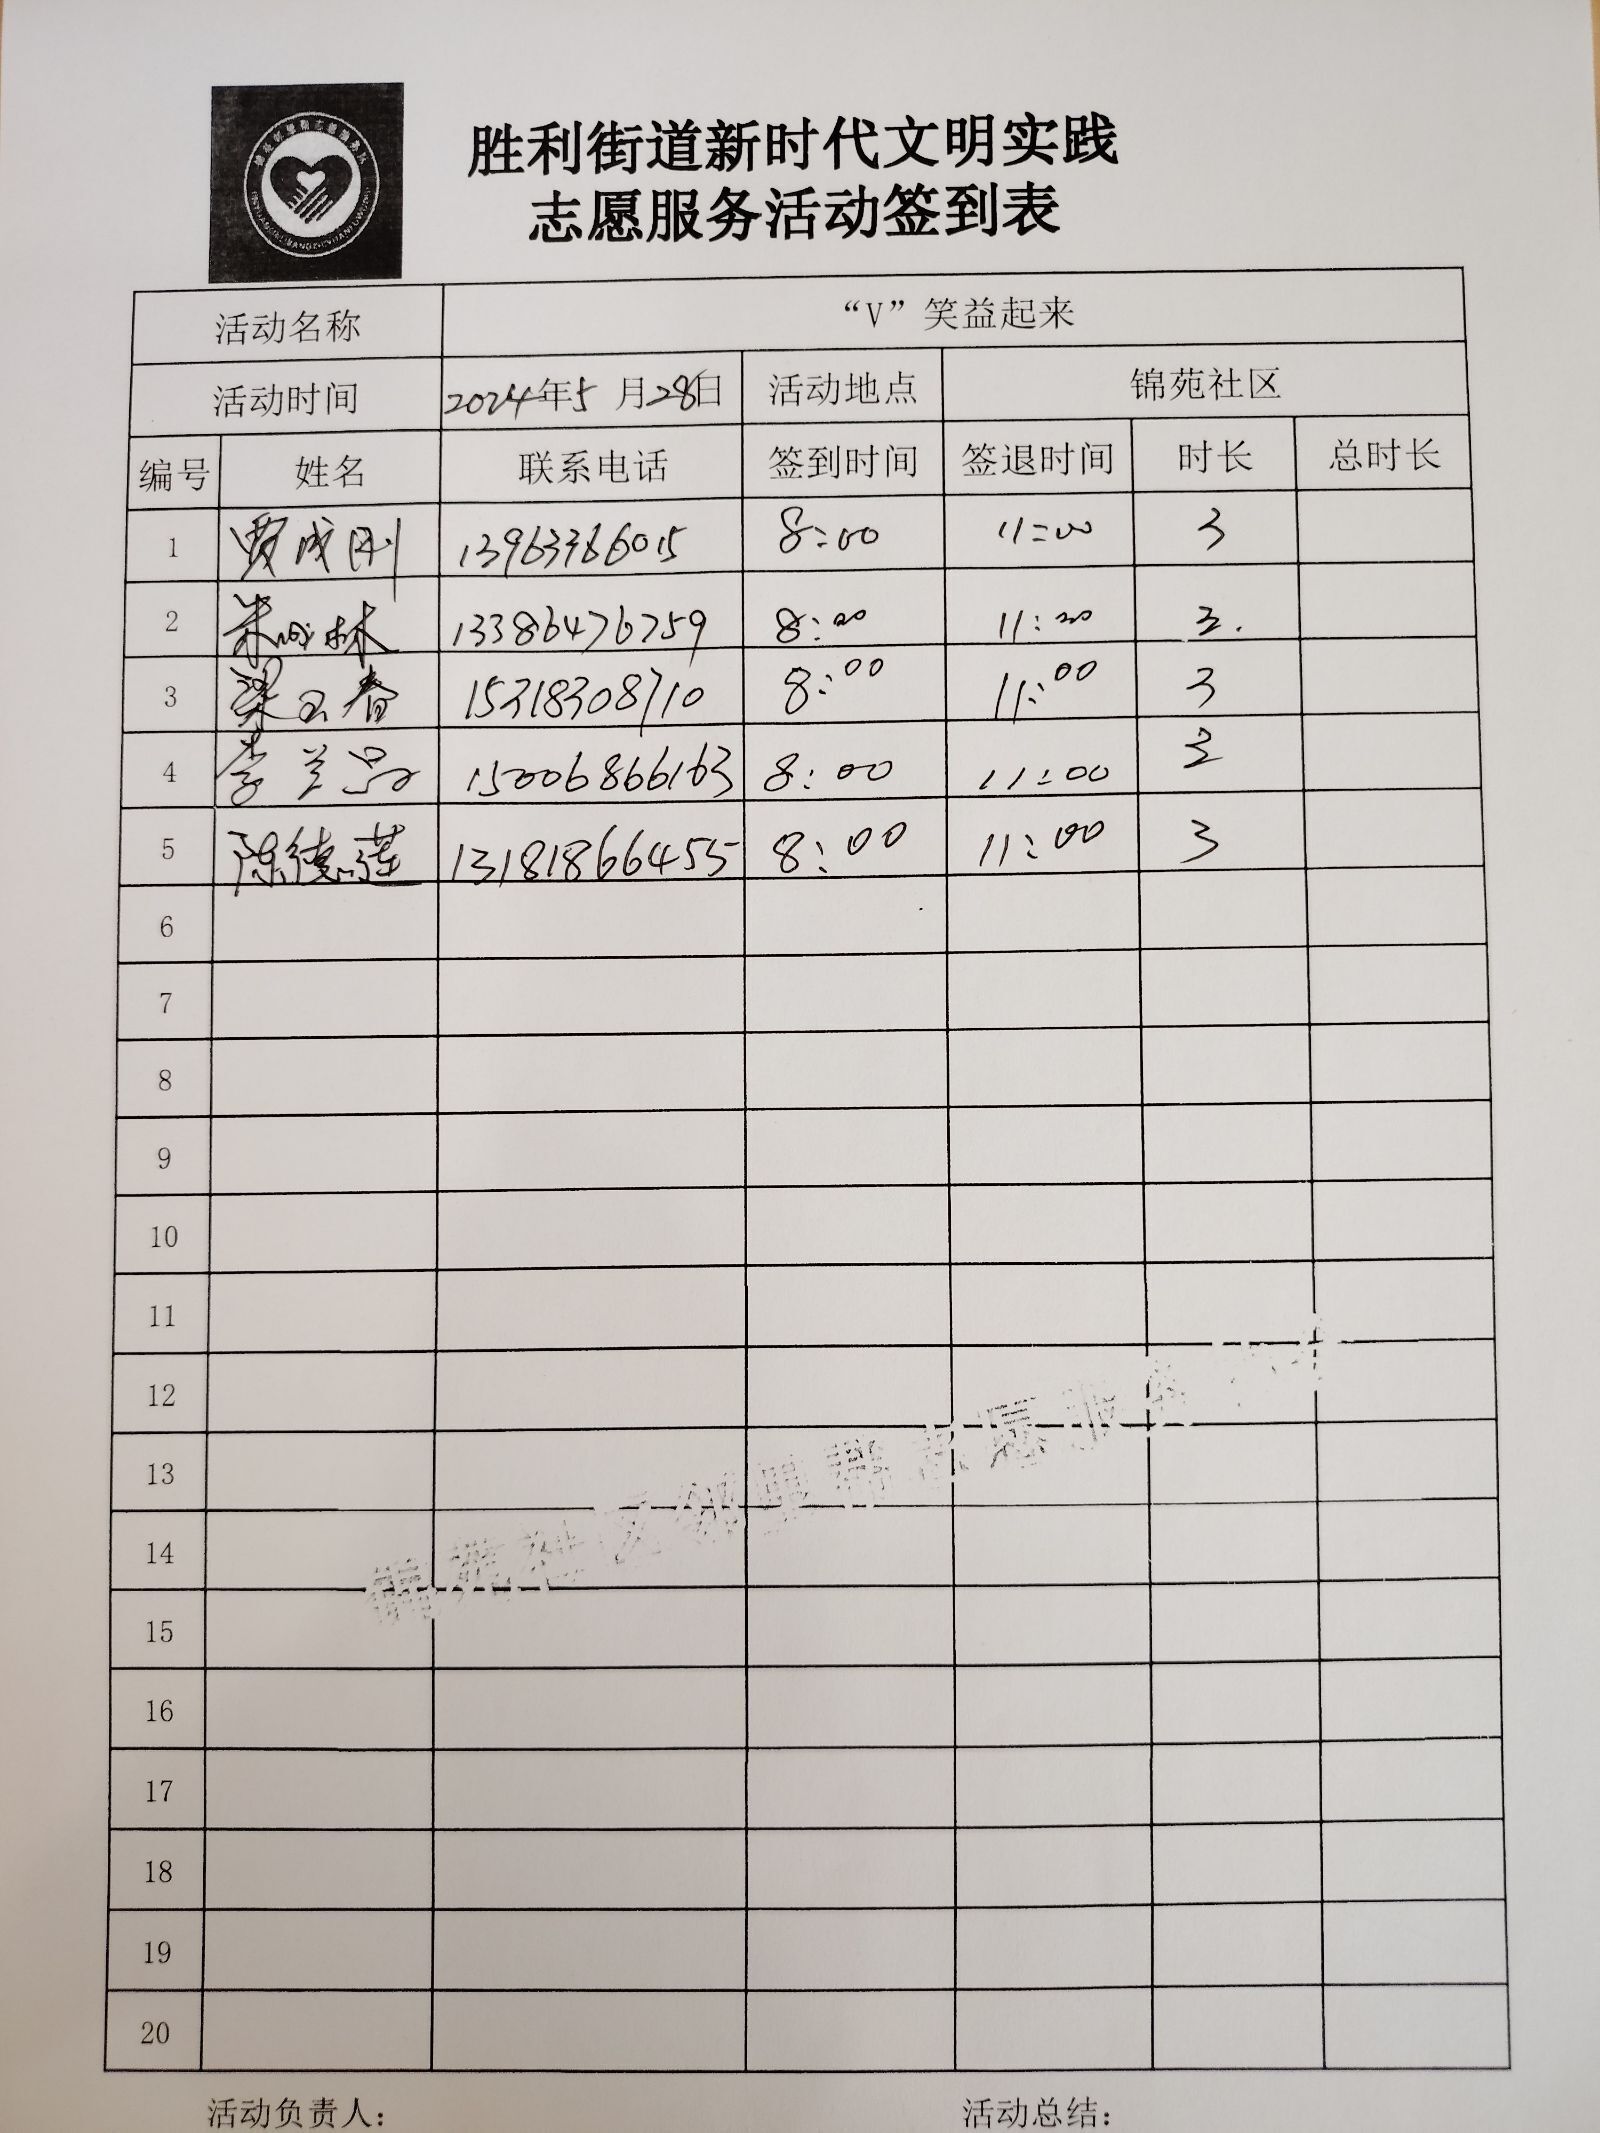 胜利街道新时代文明实践
志愿服务活动签到表
活动名称 “V”笑益起来
活动时间 2024年5月28日 活动地点 锦苑社区
编号 姓名 联系电话 签到时间 签退时间 时长 总时长
1 贾成刚 13963386015 8:00 11:00 3
2 朱成林 13386476759 8:00 11:00 3.
3 梁玉春 15318308710 8:00 11:00 3
4 李兰 15006866163 8:00 11:00 3
5 陈德莲 13181866455 8:00 11:00 3
6
7
8
9
10
11
12
13
14
15
16
17
18
19
20
锦苑社区 志愿服务
活动负责人: 活动总结: